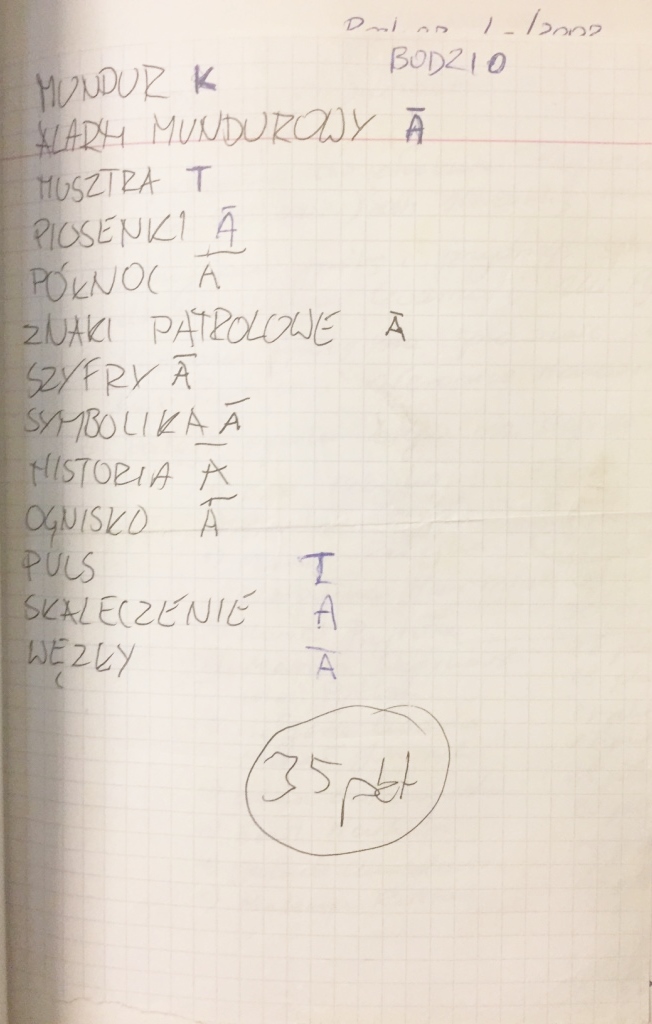 BODZIO
MUNDUR K
ALARM MUNDUROWY Ā
MUSZTRA T
PIOSENKI Ā
PÓŁNOC Ā
ZNAKI PATROLOWE Ā
SZYFRY Ā
SYMBOLIKA Ā
HISTORIA Ā
OGNISKO Ā
PULS T
SKALECZENIE A
WĘZŁY Ā
35 pkt